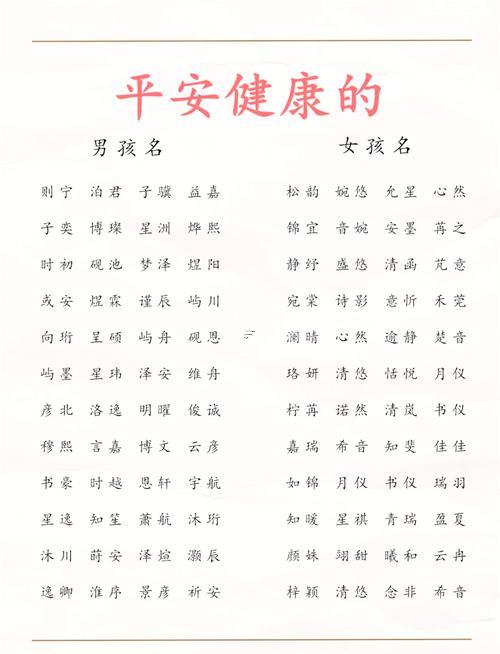 平安健康的
男孩名 女孩名
则宁 泊君 子骥 益嘉 松韵 婉悠 允星 心然
子奕 博璨 星洲 烨熙 锦宜 音婉 安墨 苒之
时初 砚池 梦泽 煜阳 静纾 盛悠 清函 芃意
或安 煜霖 谨辰 屿川 宛棠 诗影 意忻 禾莞
向珩 呈硕 屿舟 砚恩 澜晴 心然 逾静 楚音
屿墨 星玮 泽安 维舟 珞妍 清悠 恬悦 月仪
彦北 洛逸 明曜 俊诚 柠苒 诺然 清岚 书仪
穆熙 言嘉 博文 云彦 嘉瑞 希音 知斐 佳佳
书豪 时越 恩轩 宇航 如锦 月仪 书仪 瑞羽
星逸 知笙 萧航 沐珩 知暖 星祺 青瑞 盈夏
沐川 莳安 泽煊 灏辰 颜姝 翊甜 曦和 云冉
逸卿 淮序 景彦 祈安 梓颖 清悠 念非 希音